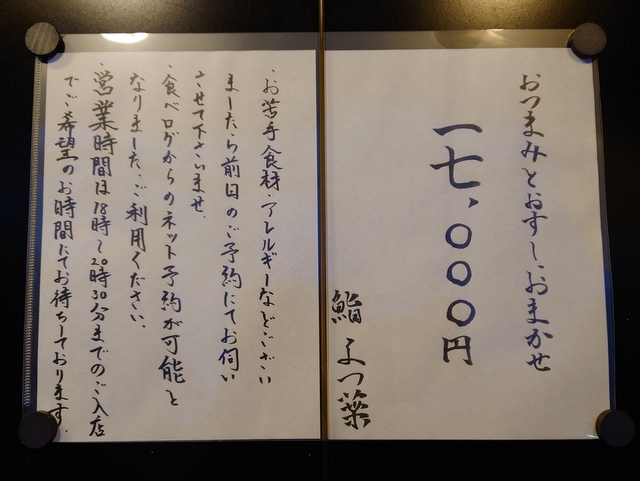 おつまみとおすし、おまかせ
一七、〇〇〇円
鮨 よつ葉
・お苦手食材・アレルギーなどございい
ましたら前日のご予約にてお伺い
させて下さいませ。
・食べログからのネット予約が可能と
なりました。ご利用ください。
・営業時間は18時〜20時30分までのご入店
でご希望のお時間にてお待ちしております。